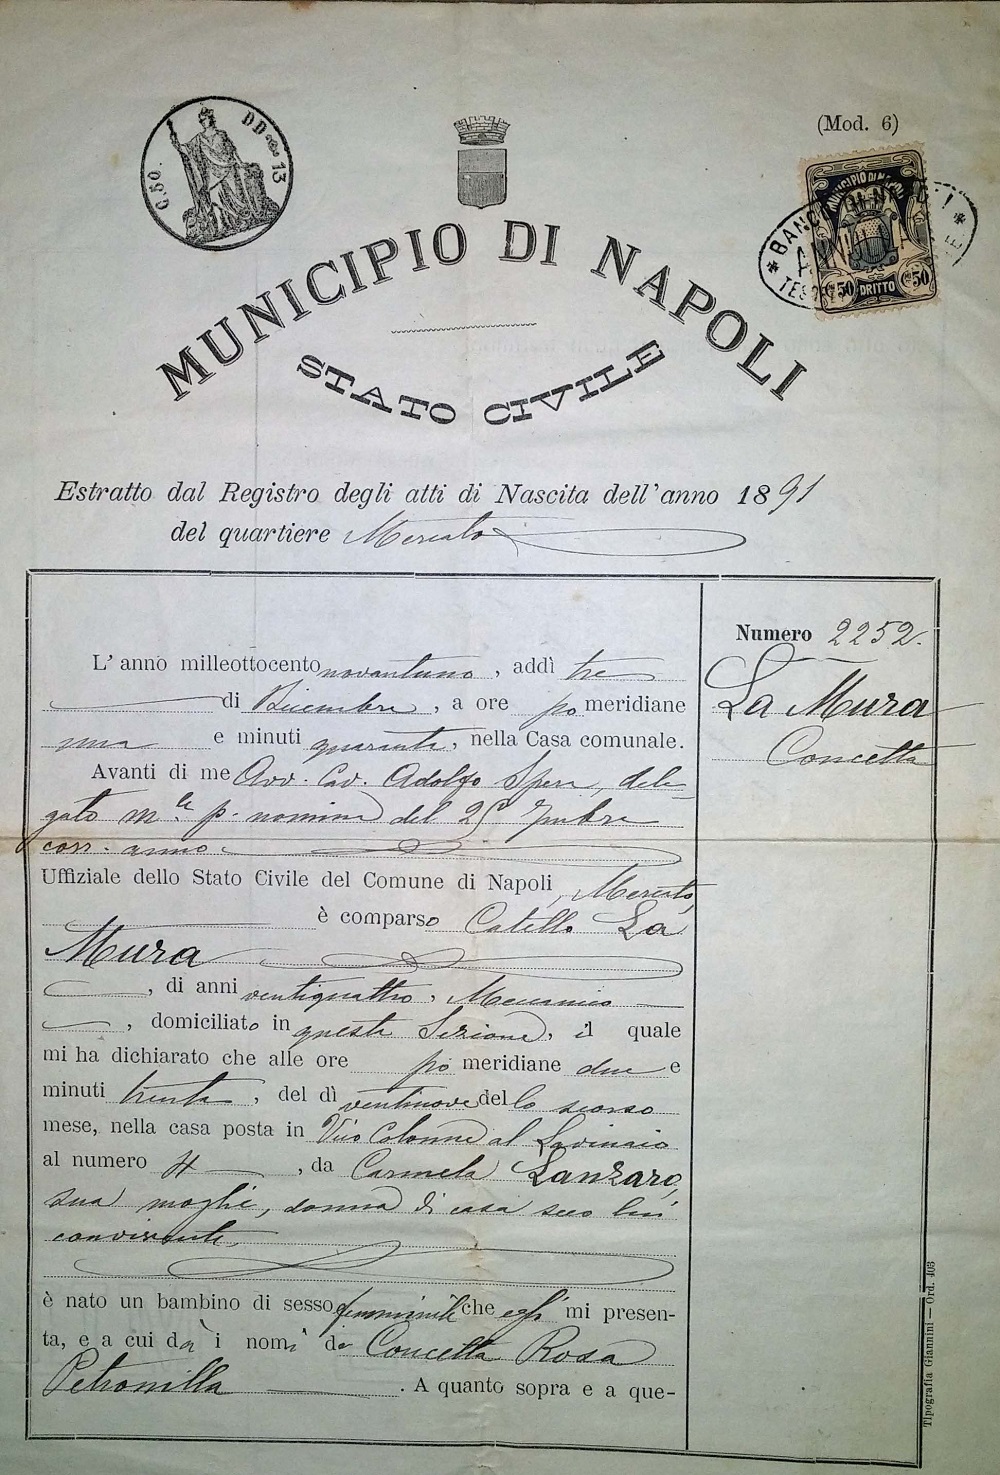 (Mod. 6)
C. 50. DD.mi 13
MUNICIPIO DI NAPOLI
C. 50 DRITTO C. 50
MUNICIPIO DI NAPOLI
STATO CIVILE
Estratto dal Registro degli atti di Nascita dell'anno 1891
del quartiere Mercato
Numero 2252.
La Mura
Concetta
L'anno milleottocento novantuno, addì tre
di Dicembre, a ore pomeridiane
una e minuti quaranta, nella Casa comunale.
Avanti di me Avv. Cav. Adolfo Spera, dele-
gato m.le p. nomina del 25 7mbre
corr. anno
Uffiziale dello Stato Civile del Comune di Napoli, Mercato,
è comparso Catello La
Mura
, di anni ventiquattro, Meccanico
, domiciliato in questa Sezione, il quale
mi ha dichiarato che alle ore po meridiane due e
minuti trenta, del dì ventinove dello scorso
mese, nella casa posta in Vico Colonne al Lavinaio
al numero 4, da Carmela Lanzaro,
sua moglie, donna di casa seco lui
convivente,
è nato un bambino di sesso femminile che egli mi presen-
ta, e a cui dà i nomi di Concetta Rosa
Petronilla. A quanto sopra e a que-
Tipografia Giannini — Ord. 403